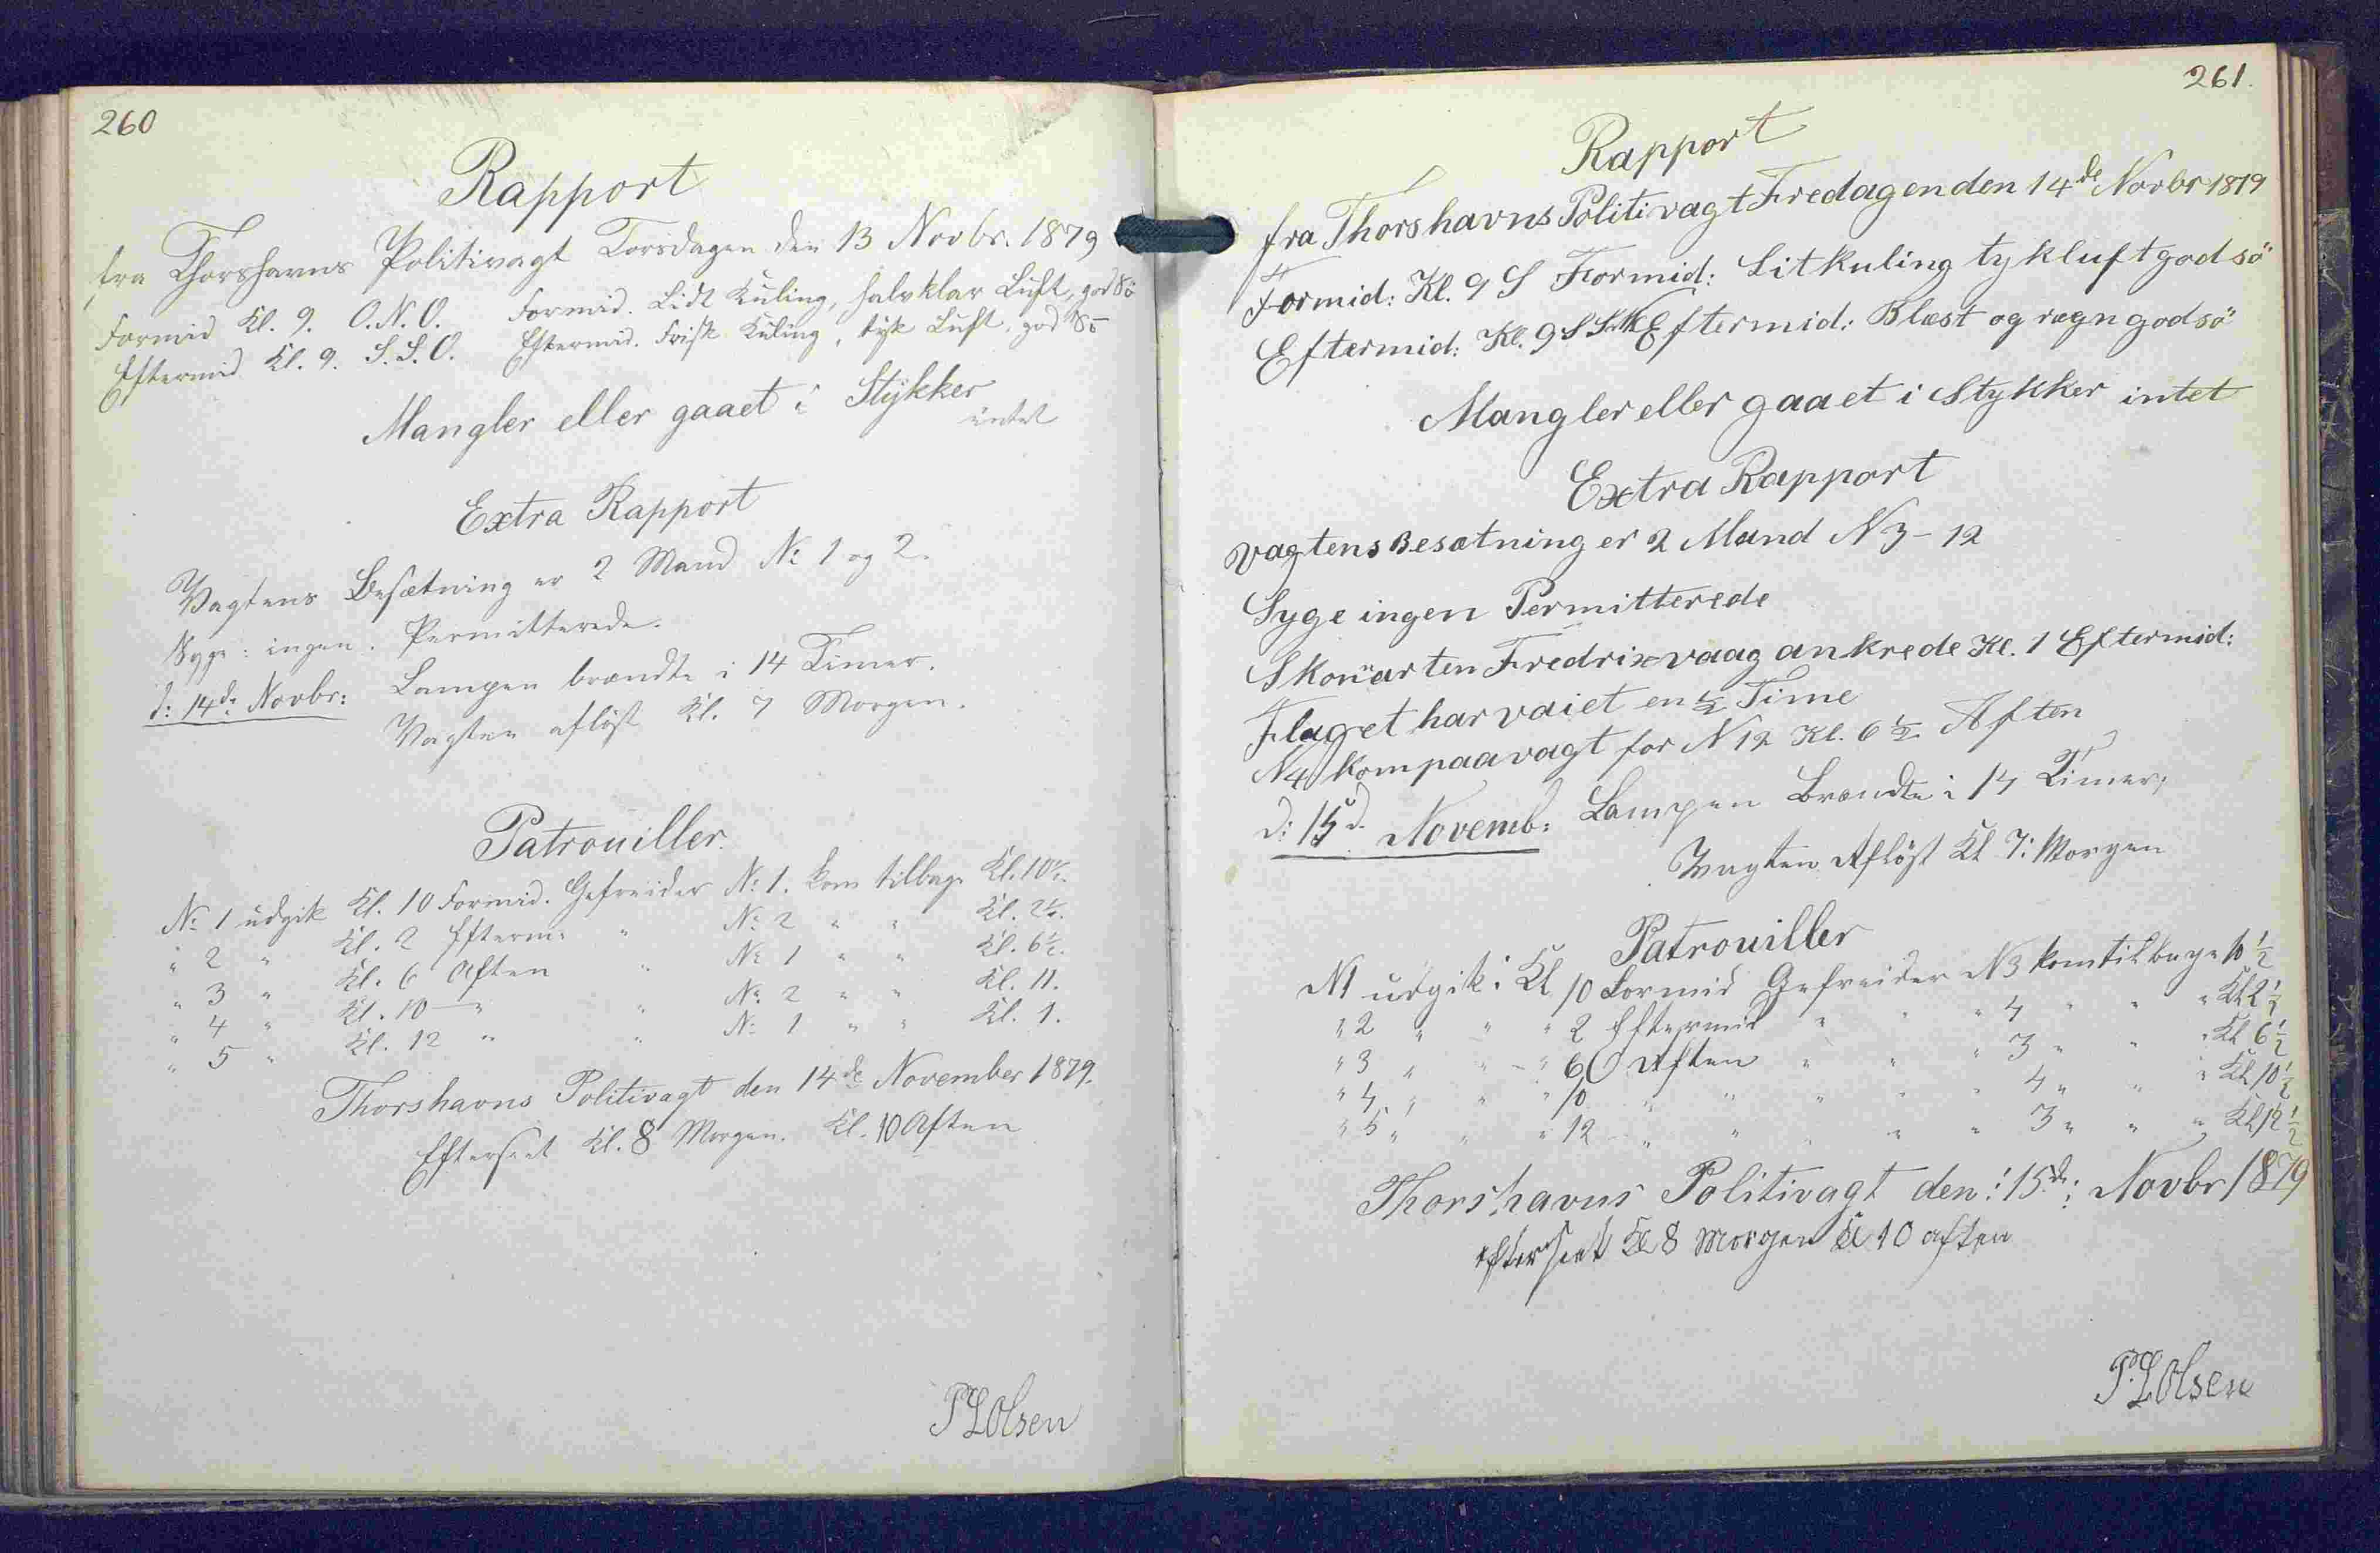 260
Rapport
fra Thorshavns Politivagt Torsdagen den 13 Novbr. 1879
Formid Kl. 9. O.N.O. Formid. Lidt Kuling, halvklar Luft, god Sö
Eftermid Kl. 9. S.S.O. Eftermid. Frisk Kuling, tyk Luft, god Sö
Mangler eller gaaet i Stykker
intet
Extra Rapport
Vagtens Besætning er 2 Mand No 1 og 2.
Syge: ingen. Permitterede.
d: 14de Novbr: Lampen brændte i 14 Timer.
Vagten aflöst Kl. 7 Morgen.
Patrouiller.
No 1 udgik Kl. 10 Formid. Gefreider No 1. kom tilbage Kl. 10½.
" 2 " Kl. 2 Efterm: " No 2 " " Kl. 2½.
" 3 " Kl. 6 Aften " No 1 " " Kl. 6½.
" 4 " Kl. 10 — " " No 2 " " Kl. 11.
" 5 " Kl. 12 " " No 1 " " Kl. 1.
Thorshavns Politivagt den 14de November 1879.
Efterseet Kl. 8 Morgen. Kl. 10 Aften
P L Olsen
261.
Rapport
fra Thorshavns Politivagt Fredagen den 14de Novbr 1879
Formid: Kl. 9 S Formid: Litkuling tykluft god sö
Eftermid: Kl. 9 Eftermid: Blæst og rægn god sö
Mangler eller gaaet i Stykker intet
Extra Rapport
Vagtens Besætning er 2 Mand N 3 - 12
Syge ingen Permitterede
Skonarten Fredrixvaag ankrede Kl. 1 Eftermid:
Flaget har vaiet en ½ Time
N4 kom paa vagt for N 12 Kl. 6 ½ Aften
d: 15d. Novemb: Lampen Brændte i 14 Timer,
Vagten Aflöst Kl 7: Morgen
Patrouiller
N1 udgik i Kl 10 Formid Gefreider N3 kom tilbage 10 ½
" 2 " " " 2 Eftermid " " " 4 " " " Kl 2 ½
" 3 " " - " 6 Aften " " " 3 " " " Kl 6 ½
" 4 " " " 10 " " " " " 4 " " " Kl 10 ½
" 5 " " " 12 " " " " " 3 " " " Kl 12 ½
Thorshavns Politivagt den: 15de: Novbr 1879
efterseet Kl 8 Morgen Kl 10 aften
P. L Olsen